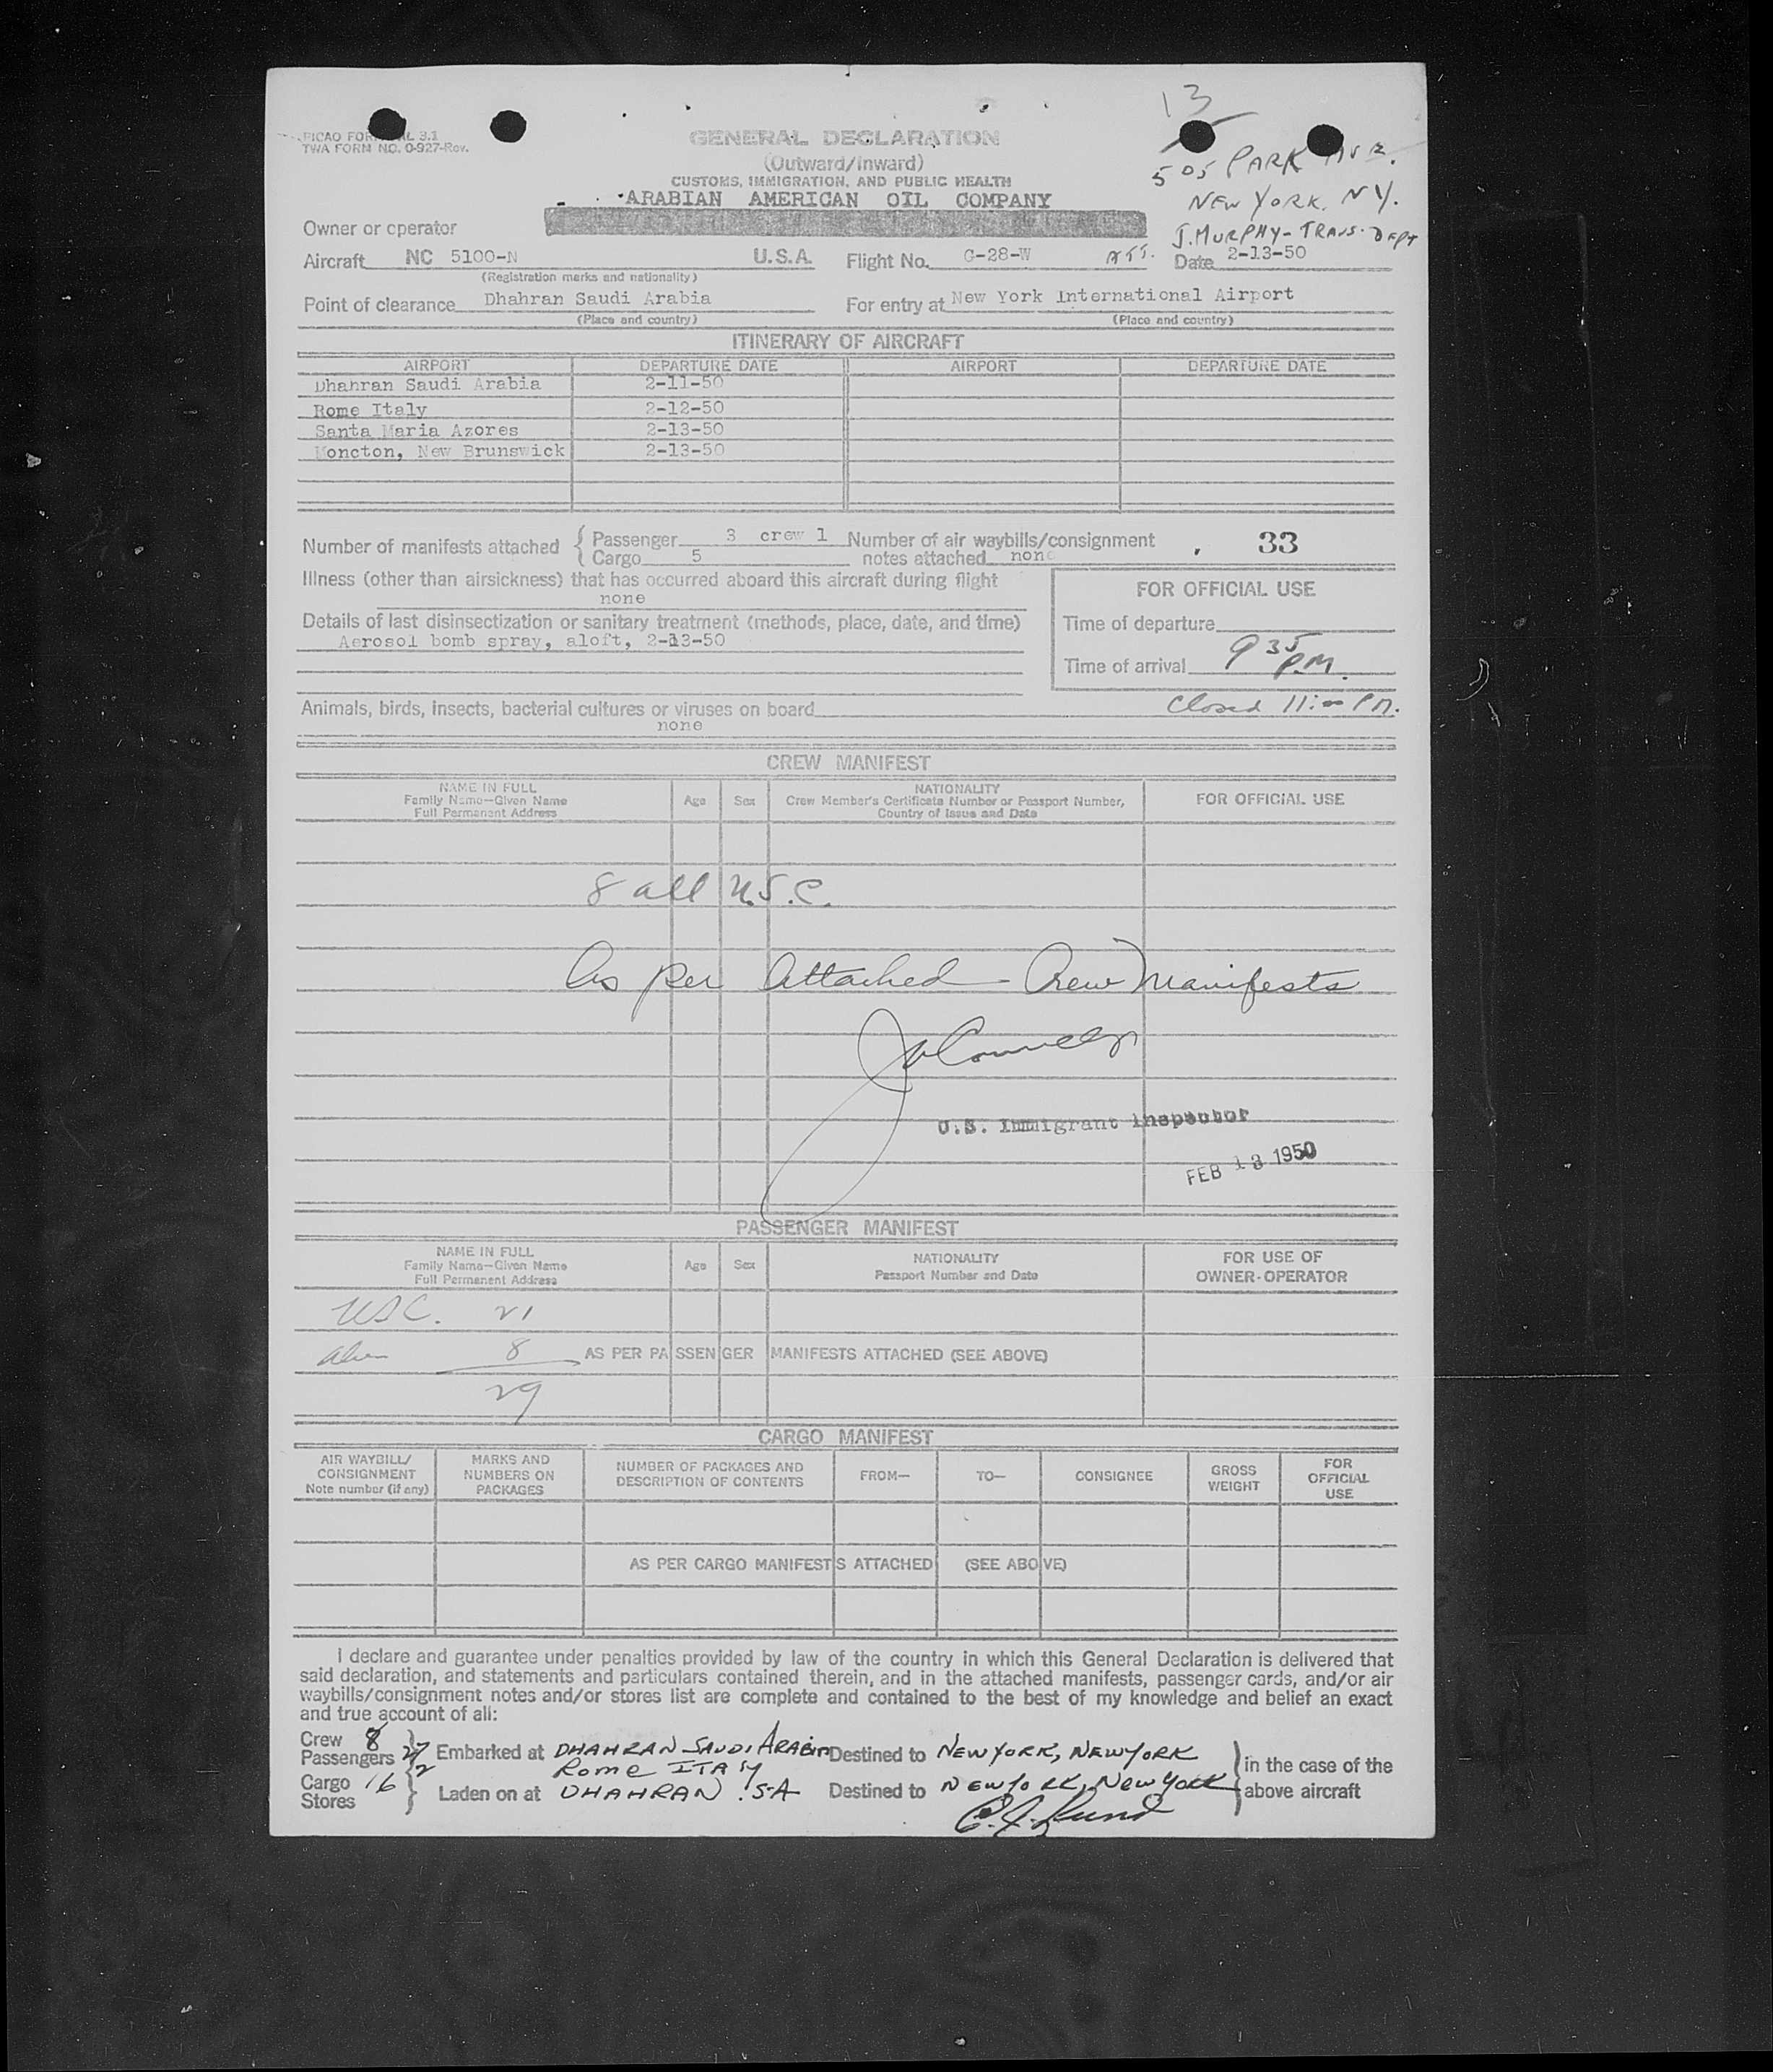 13
PICAO FOR L 3.1
TWA FORM NO. 0-927-Rev.
GENERAL DECLARATION
(Outward/Inward)
CUSTOMS, IMMIGRATION, AND PUBLIC HEALTH
505 PARK AVE.
NEW YORK, NY.
J. MURPHY-TRANS. DEPT
ARABIAN AMERICAN OIL COMPANY
Owner or operator
Aircraft NC 5100-N U.S.A. Flight No. G-28-W Date 2-13-50
(Registration marks and nationality)
Point of clearance Dhahran Saudi Arabia For entry at New York International Airport
(Place and country) (Place and country)
ITINERARY OF AIRCRAFT
AIRPORT DEPARTURE DATE AIRPORT DEPARTURE DATE
Dhahran Saudi Arabia 2-11-50
Rome Italy 2-12-50
Santa Maria Azores 2-13-50
Moncton, New Brunswick 2-13-50
Number of manifests attached { Passenger 3 crew 1 Number of air waybills/consignment 33
Cargo 5 notes attached none
Illness (other than airsickness) that has occurred aboard this aircraft during flight
none
FOR OFFICIAL USE
Details of last disinsectization or sanitary treatment (methods, place, date, and time)
Aerosol bomb spray, aloft, 2-13-50
Time of departure
Time of arrival 9 35 P.M.
Closed 11:00 P.M.
Animals, birds, insects, bacterial cultures or viruses on board
none
CREW MANIFEST
NAME IN FULL
Family Name—Given Name
Full Permanent Address
Age Sex
NATIONALITY
Crew Member's Certificate Number or Passport Number,
Country of Issue and Date
FOR OFFICIAL USE
8 all U.S.C.
As per Attached - Crew Manifests
U.S. Immigrant Inspector
FEB 13 1950
PASSENGER MANIFEST
NAME IN FULL
Family Name—Given Name
Full Permanent Address
Age Sex
NATIONALITY
Passport Number and Date
FOR USE OF
OWNER-OPERATOR
USC. 21
alien 8 AS PER PASSENGER MANIFESTS ATTACHED (SEE ABOVE)
29
CARGO MANIFEST
AIR WAYBILL/
CONSIGNMENT
Note number (if any)
MARKS AND
NUMBERS ON
PACKAGES
NUMBER OF PACKAGES AND
DESCRIPTION OF CONTENTS
FROM— TO— CONSIGNEE
GROSS
WEIGHT
FOR
OFFICIAL
USE
AS PER CARGO MANIFESTS ATTACHED (SEE ABOVE)
I declare and guarantee under penalties provided by law of the country in which this General Declaration is delivered that
said declaration, and statements and particulars contained therein, and in the attached manifests, passenger cards, and/or air
waybills/consignment notes and/or stores list are complete and contained to the best of my knowledge and belief an exact
and true account of all:
Crew 8
Passengers 27 } Embarked at DHAHRAN SAUDI ARABIA Destined to NEW YORK, NEW YORK } in the case of the
2 Rome ITALY
Cargo 16 } Laden on at DHAHRAN S.A Destined to NEW YORK, NEW YORK above aircraft
Stores